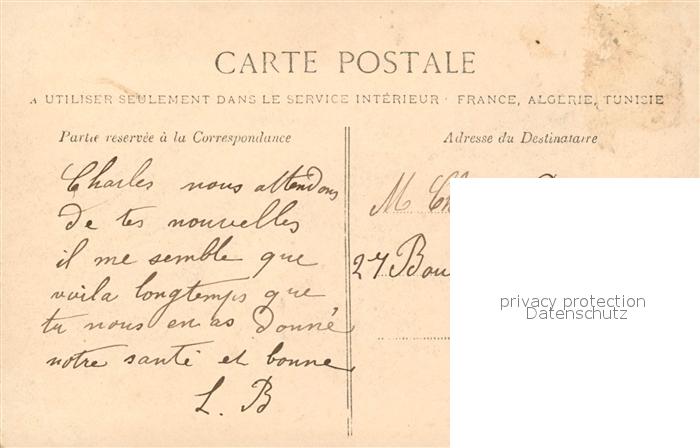 CARTE POSTALE
A UTILISER SEULEMENT DANS LE SERVICE INTÉRIEUR · FRANCE, ALGERIE, TUNISIE
Partie reservée à la Correspondance
Adresse du Destinataire
Charles nous attendons
de tes nouvelles
il me semble que
voila longtemps que
tu nous en as donné
notre santé et bonne
L. B
M
27 Bou
privacy protection
Datenschutz